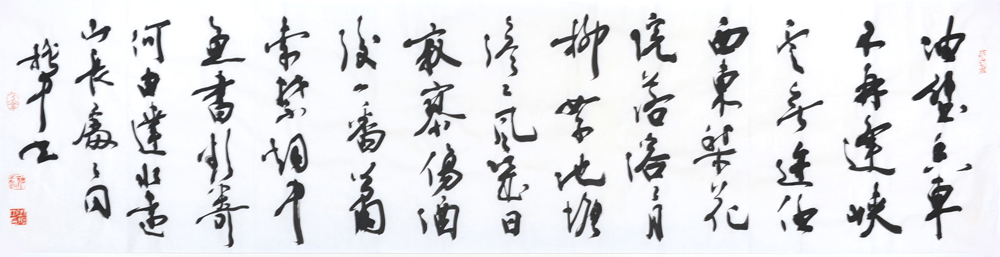 油壁香車
不再逢峽
雲無迹任
西東梨花
院落溶〻月
柳絮池塘
淡〻風幾日
寂寞傷酒
後一番蕭
索禁烟中
魚書欲寄
何由達水遠
山長處〻同